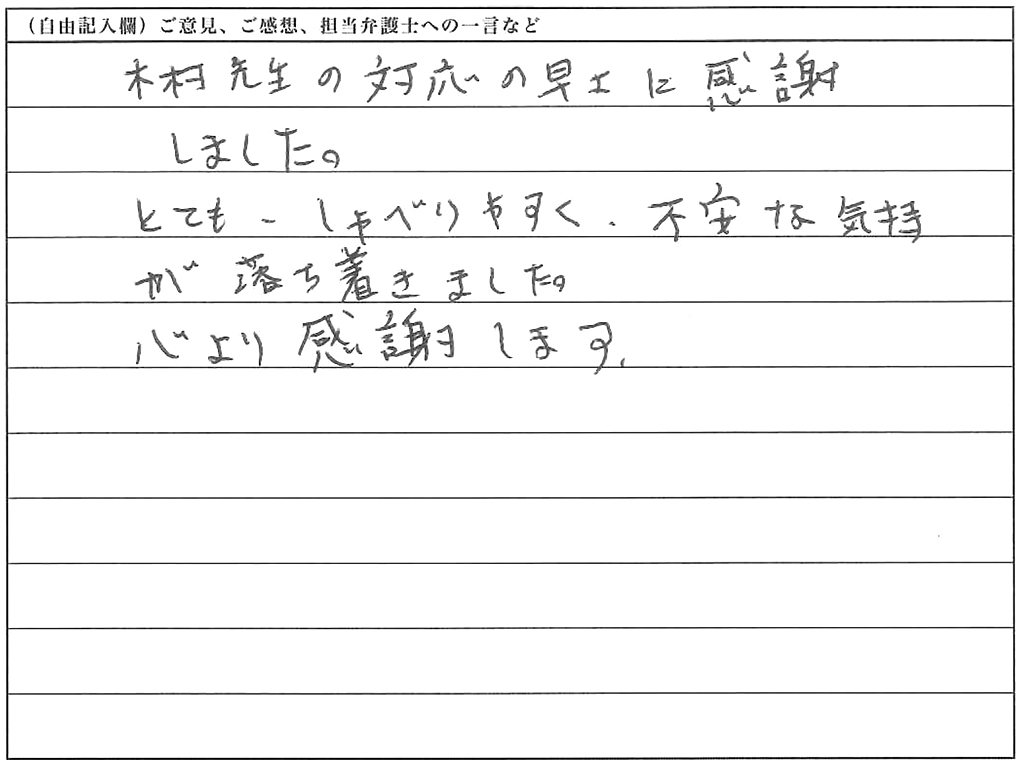 （自由記入欄）ご意見、ご感想、担当弁護士への一言など
木村先生の対応の早さに感謝
しました。
とても、しゃべりやすく、不安な気持
が落ち着きました。
心より感謝します。